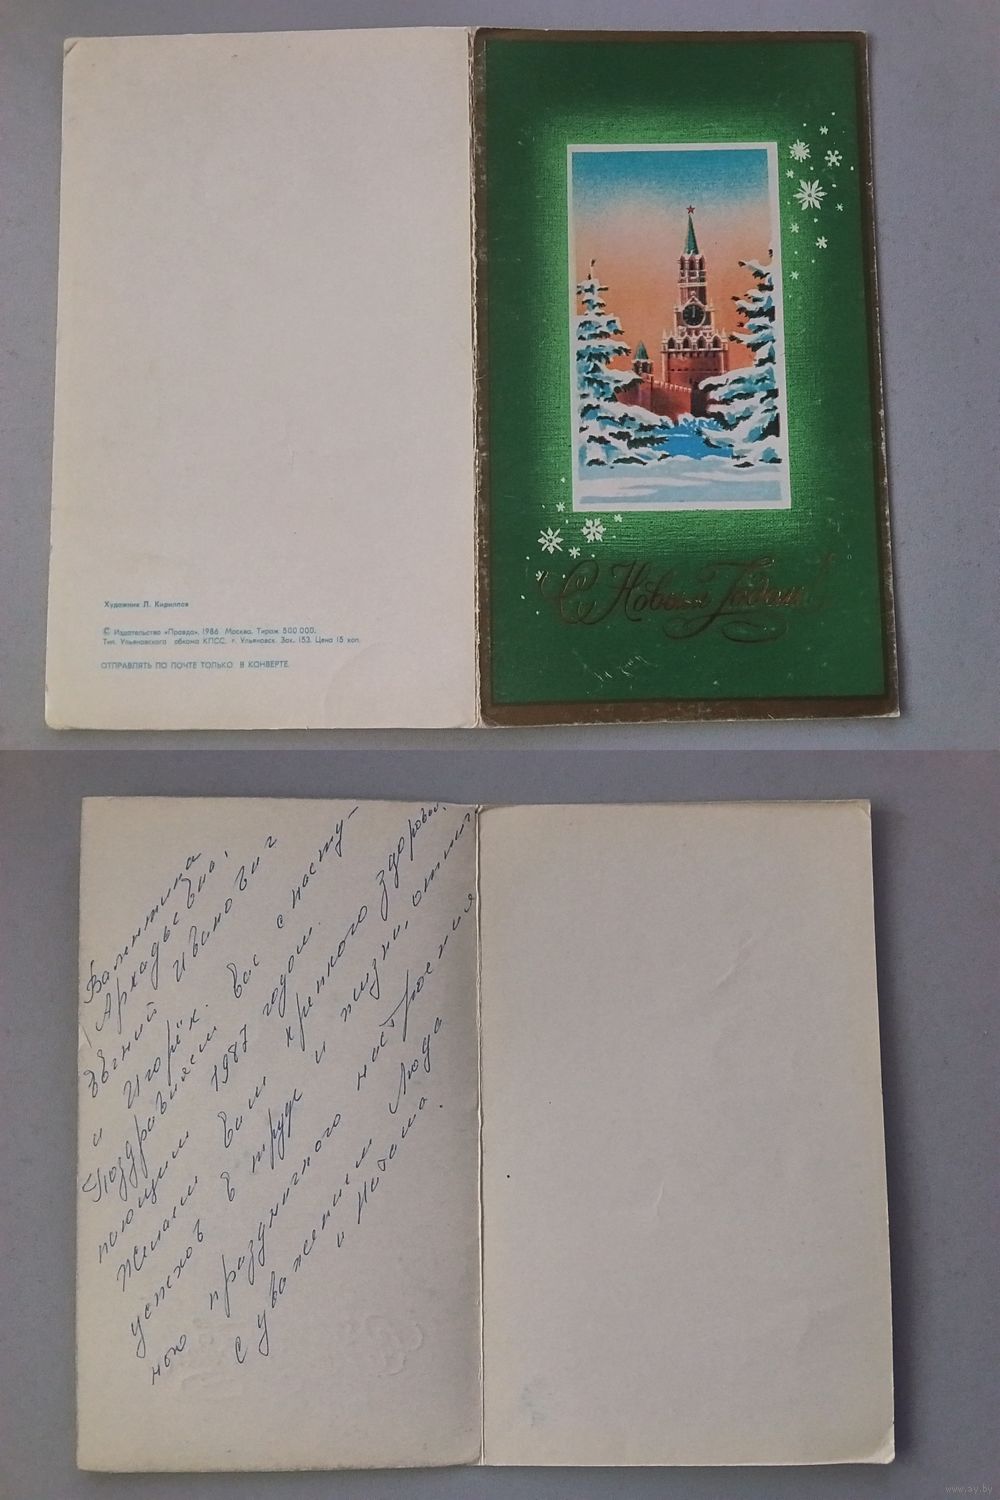 С Новым Годом!
Художник Л. Кириллов
© Издательство «Правда», 1986 Москва. Тираж 500 000.
Тип. Ульяновского обкома КПСС. г. Ульяновск. Зак. 153. Цена 15 коп.
ОТПРАВЛЯТЬ ПО ПОЧТЕ ТОЛЬКО В КОНВЕРТЕ.
Валентина
Аркадьевна,
Евгний Иванович
и Игорёк.
Поздравляем Вас с насту-
пающим 1987 годом.
Желаем Вам крепкого здоровья,
успехов в труде и жизни, отлич
ного праздничного настроения
С уважением Люда
и Наташа.
www.ay.by